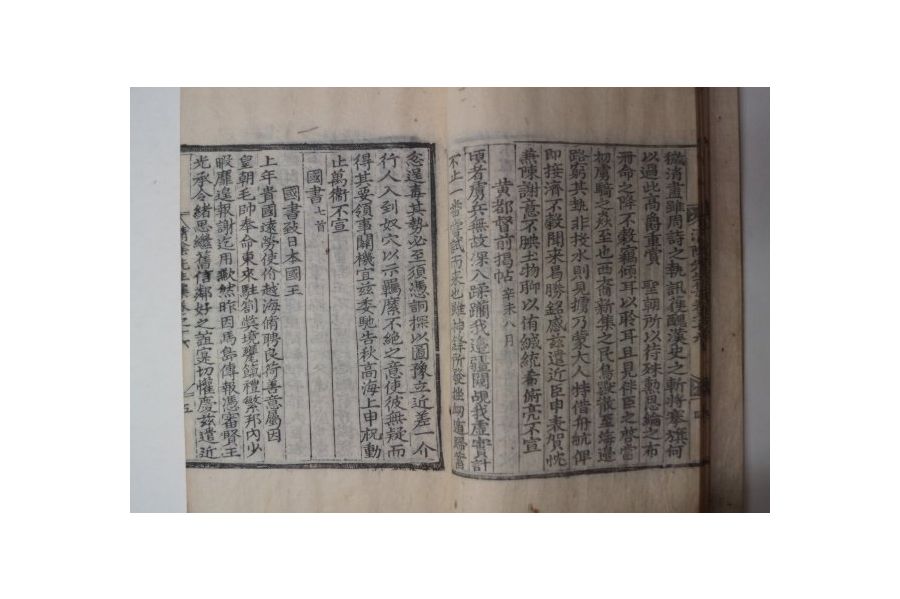 獫消晝雖周詩之執訊獲醜漢史之斬將搴旗何
以過此高爵重賞 聖詔所以行殊勳恩綸之布
冊命之降不穀竊傾耳以聆耳且見伴臣之督當
初虜騎之
路窮其執非投水則見擒乃蒙大人特借舟航俾
即接濟不穀聞來易勝銘感茲遣近臣申表賀忱
兼陳謝意不腆土物聊以侑緘統希俯亮不宣
黃都督前揭帖 辛未八月
頃者虜兵無故深入蹂躪我邊疆闖覘我虛實計
不止一番嘗試而來也雖神鋒所發
忿逞毒其勢必至須憑詗探以圖豫立近差一介
行人入到奴穴以示羈縻不絶之意使彼無疑而
得其要領事關機宜茲委馳告秋高海上申祝動
止萬衛不宣
國書 七首
國書致日本國王
上年貴國遠勞使价越海俯聘良荷善意屬因
皇朝毛帥奉命東來駐劄獎境饔餼禮繁邦內少
暇靡遑報謝迄用歉然昨因馬島傳報憑審賢王
光承令緒思繼舊信鄰好之誼寔切懽慶茲遣近
清陰先生集卷之十六
五